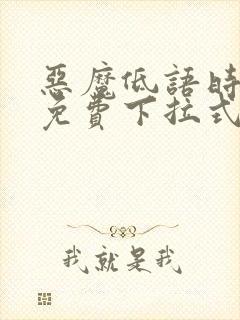 惡魔低語時
免費下拉式
我就是我